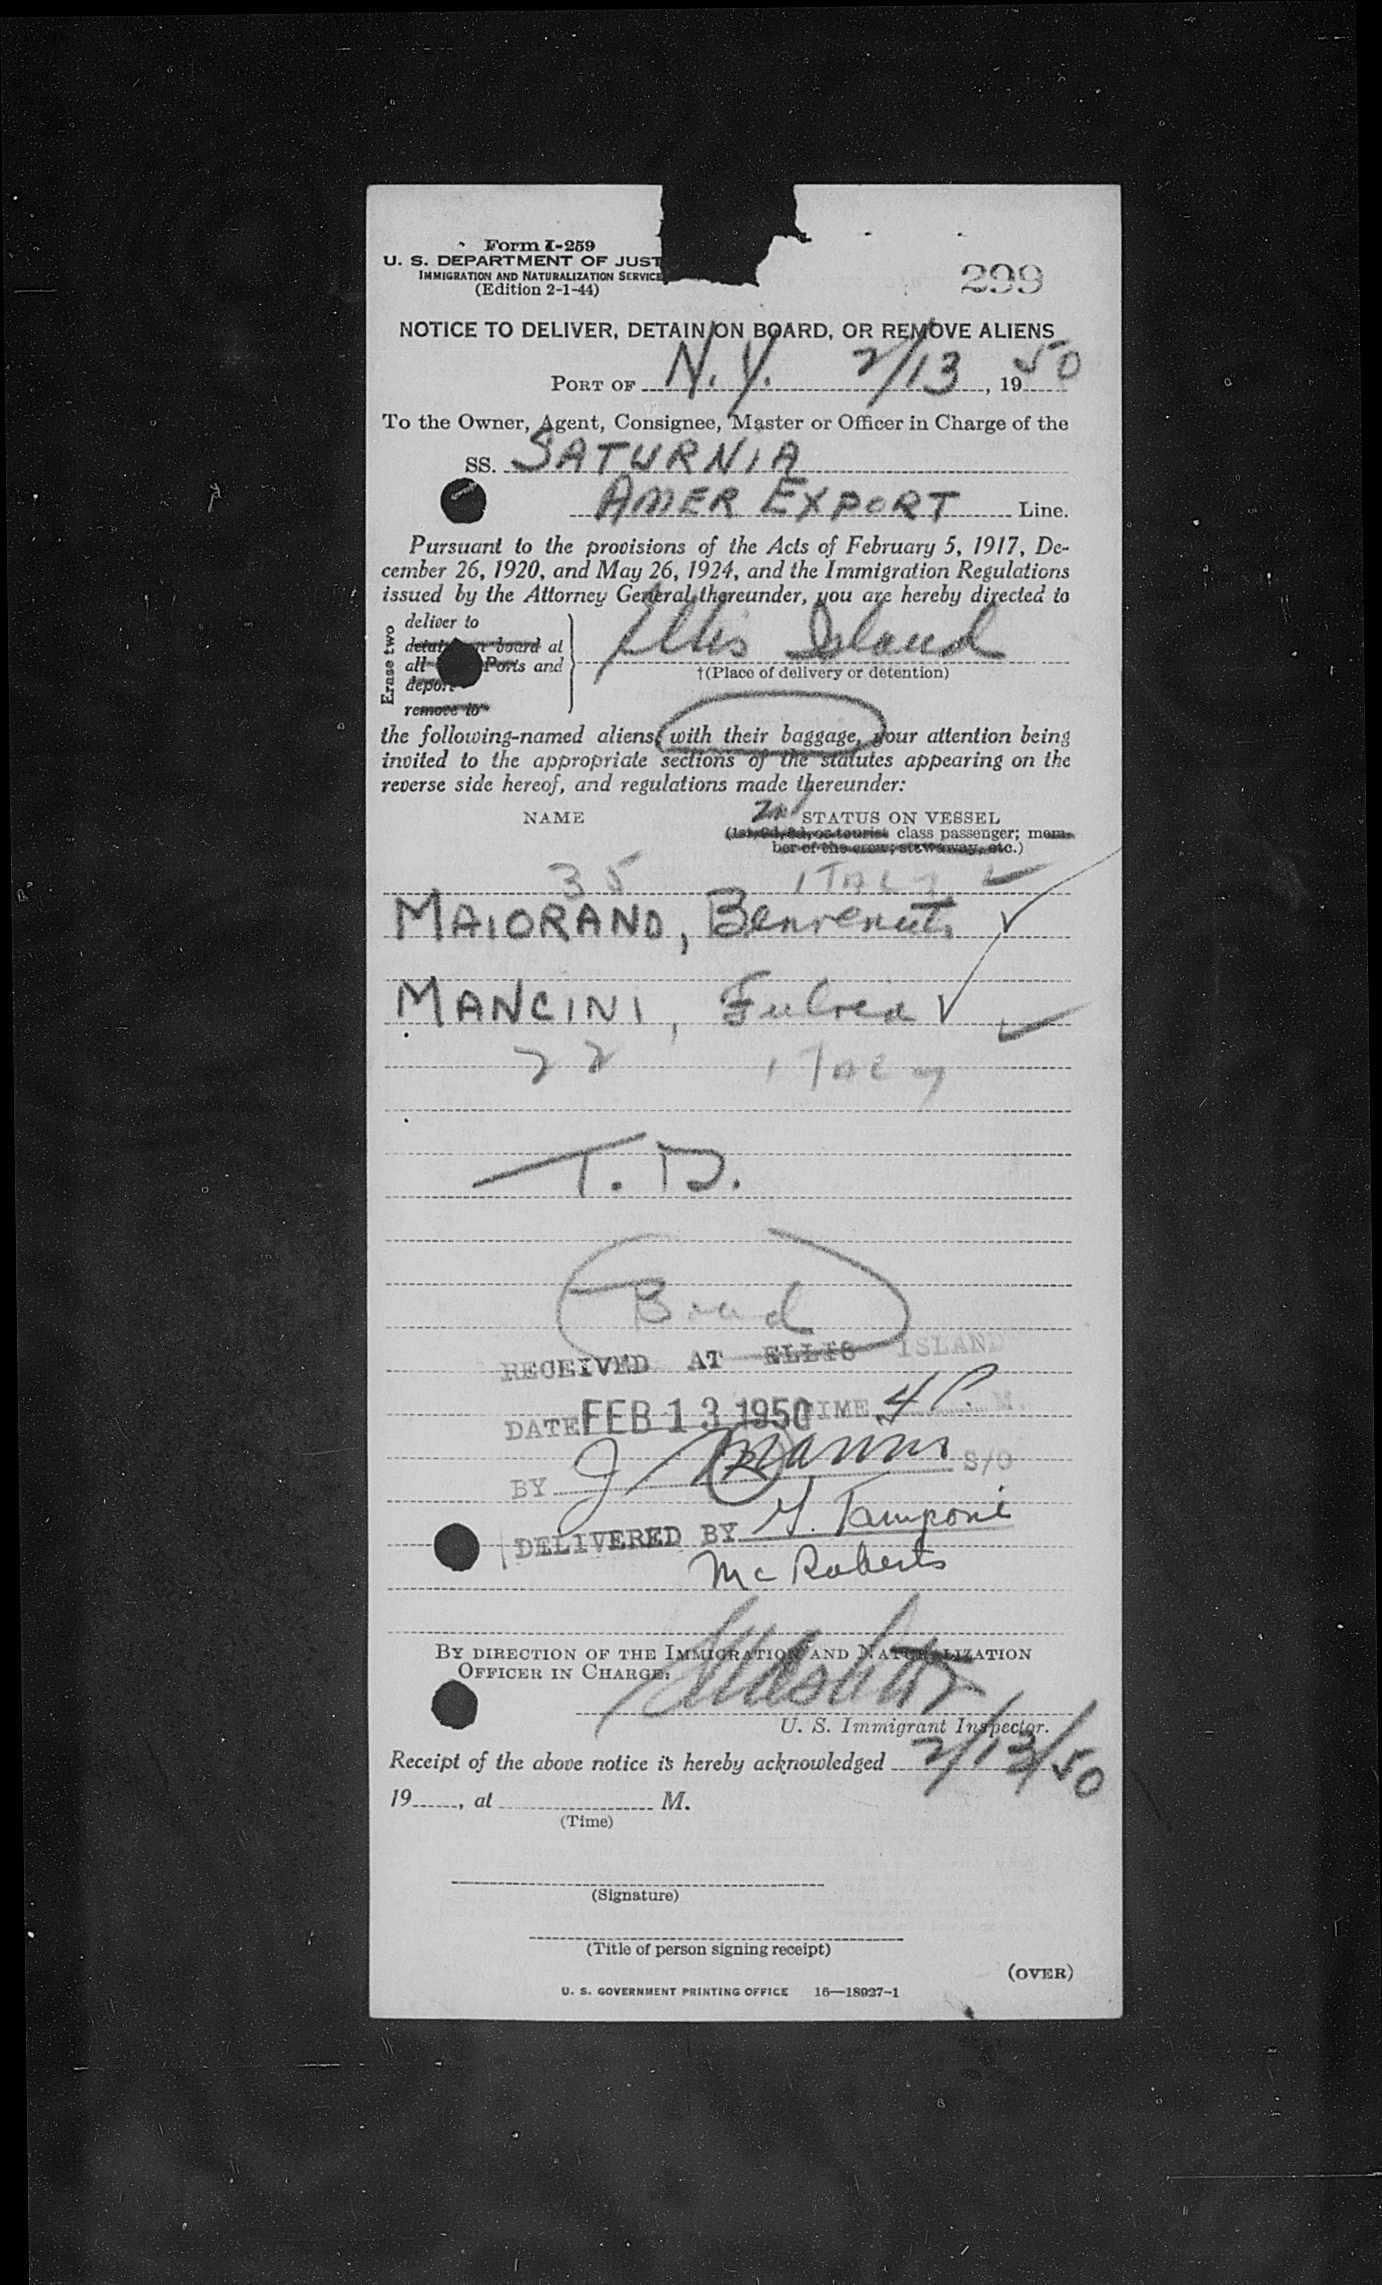 Form I-259
U. S. DEPARTMENT OF JUST
IMMIGRATION AND NATURALIZATION SERVICE
(Edition 2-1-44)
299
NOTICE TO DELIVER, DETAIN ON BOARD, OR REMOVE ALIENS
PORT OF N. Y. 2/13, 1950
To the Owner, Agent, Consignee, Master or Officer in Charge of the
SS. SATURNIA
AMER EXPORT Line.
Pursuant to the provisions of the Acts of February 5, 1917, De-
cember 26, 1920, and May 26, 1924, and the Immigration Regulations
issued by the Attorney General thereunder, you are hereby directed to
Erase two
deliver to
on board at
all Ports and
deport
remove to
Ellis Island
†(Place of delivery or detention)
the following-named aliens, with their baggage, your attention being
invited to the appropriate sections of the statutes appearing on the
reverse side hereof, and regulations made thereunder:
NAME
STATUS ON VESSEL
(1st, 2d, 3d, or tourist class passenger; mem-
ber of the crew; stowaway, etc.)
35 ITALY
MAIORANO, Benvenuto
MANCINI, Fulvia
22 ITALY
T. D.
RECEIVED AT ELLIS ISLAND
DATE FEB 13 1950 TIME 4 P. M.
BY J S/O
DELIVERED BY Tamponi
McRoberts
BY DIRECTION OF THE IMMIGRATION AND NATURALIZATION
OFFICER IN CHARGE:
U. S. Immigrant Inspector.
Receipt of the above notice is hereby acknowledged 2/13/50
19, at M.
(Time)
(Signature)
(Title of person signing receipt)
(OVER)
U. S. GOVERNMENT PRINTING OFFICE 16—18927-1